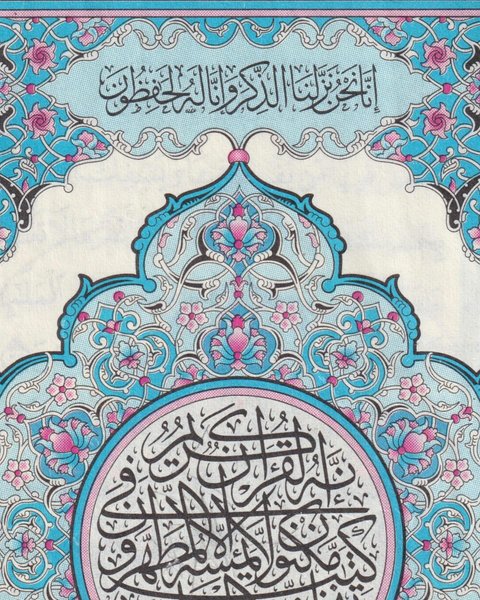 إنا نحن نزلنا الذكر وإنا له لحفظون
إنه لقرءان كريم
في
كتب مكنون لا يمسه إلا المطهرون